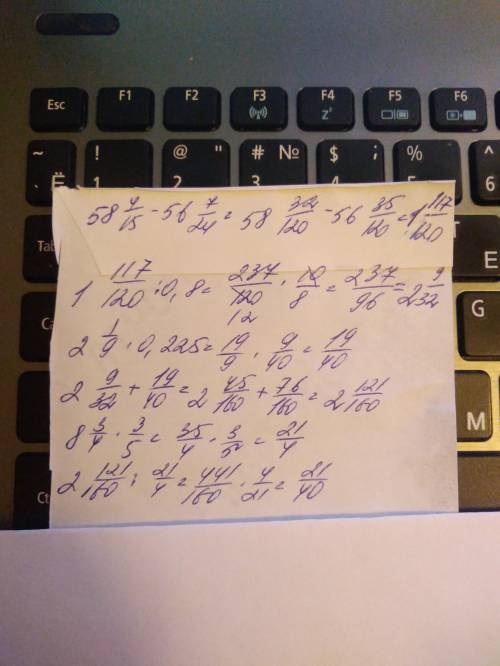 Esc F1 F2 F3 F4 F5 F6
~ Ё ! 1 @ " 2 # № 3 $ ; 4 % 5 6
58 4/15 - 56 7/24 = 58 32/120 - 56 35/120 = 1 117/120
1 117/120 : 0,8 = 237/120 12 · 10/8 = 237/96 = 2 9/32
2 1/9 · 0,225 = 19/9 · 9/40 = 19/40
2 9/32 + 19/40 = 2 45/160 + 76/160 = 2 121/160
8 3/4 · 3/5 = 35/4 · 3/5 = 21/4
2 121/160 : 21/4 = 441/160 · 4/21 = 21/40
Tab
G
Ca
Ct
M